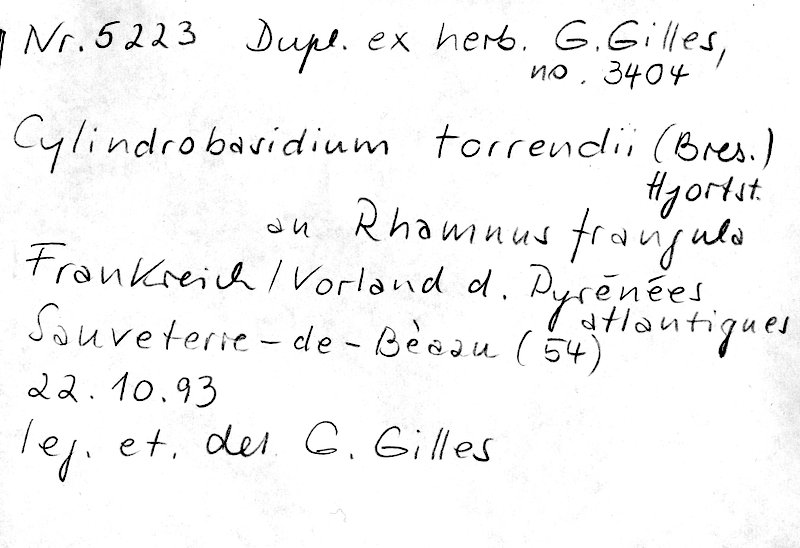 Nr. 5223 Dupl. ex herb. G. Gilles,
no. 3404
Cylindrobasidium torrendii (Bres.)
Hjortst.
an Rhamnus frangula
Frankreich / Vorland d. Pyrénées
atlantiques
Sauveterre-de-Bèaau (54)
22.10.93
leg. et. det G. Gilles